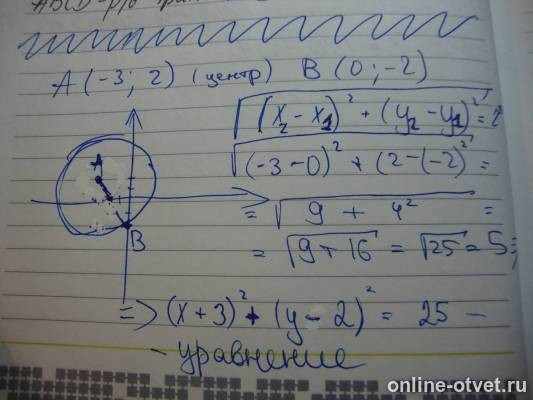 ABCD - р/б
A (-3; 2) (центр) B (0; -2)
√((x₂ - x₁)² + (y₂ - y₁)²) =
√((-3 - 0)² + (2 - (-2))²) =
= √(9 + 4²) =
= √(9 + 16) = √25 = 5 =>
A
B
=> (x + 3)² + (y - 2)² = 25 -
- уравнение
online-otvet.ru